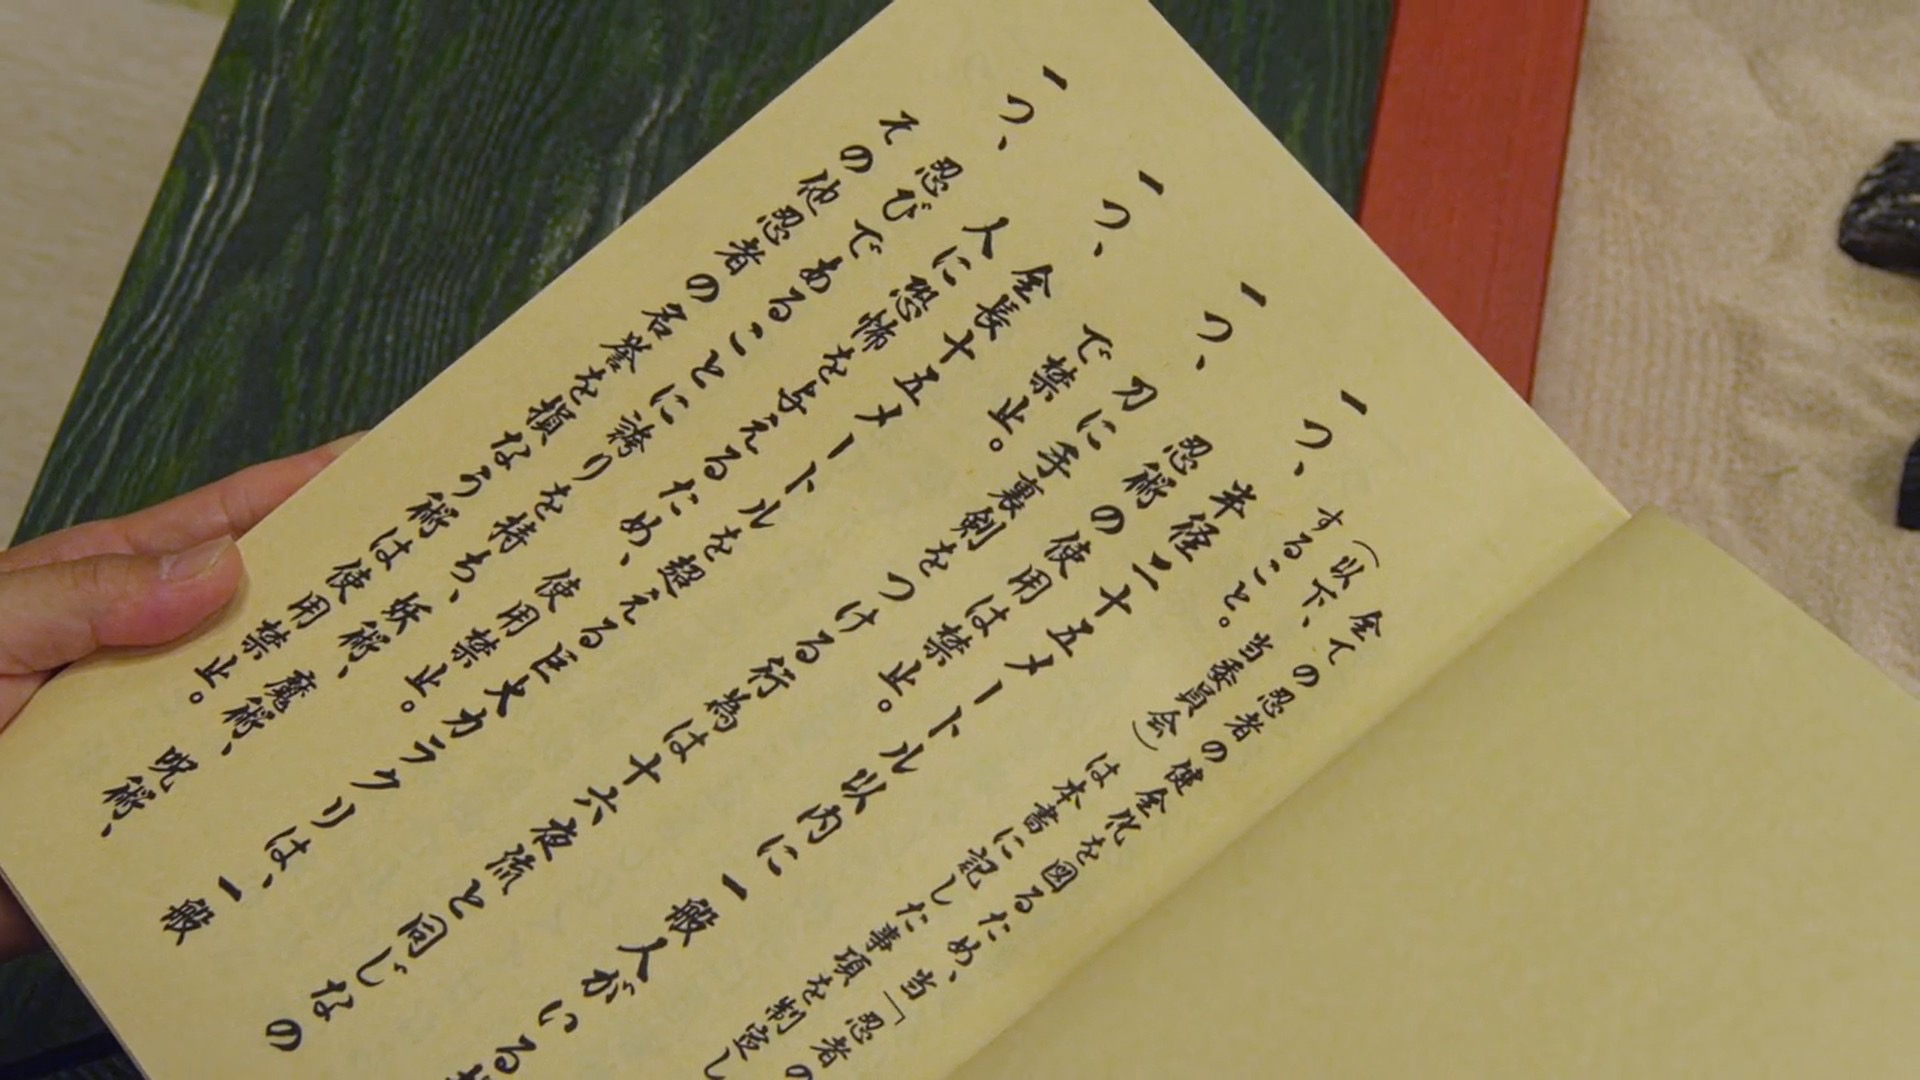 全ての忍者の健全化を図るため、当「忍者の
（以下、当委員会）は本書に記した事項を制定し
すること。
一つ、半径二十五メートル以内に一般人がいる
忍術の使用は禁止。
一つ、刀に手裏剣をつける行為は十六夜流と同じなの
で禁止。
一つ、全長十五メートルを超える巨大カラクリは、一般
人に恐怖を与えるため、使用禁止。
一つ、忍びであることに誇りを持ち、妖術、魔術、呪術、
その他忍者の名誉を損なう術は使用禁止。